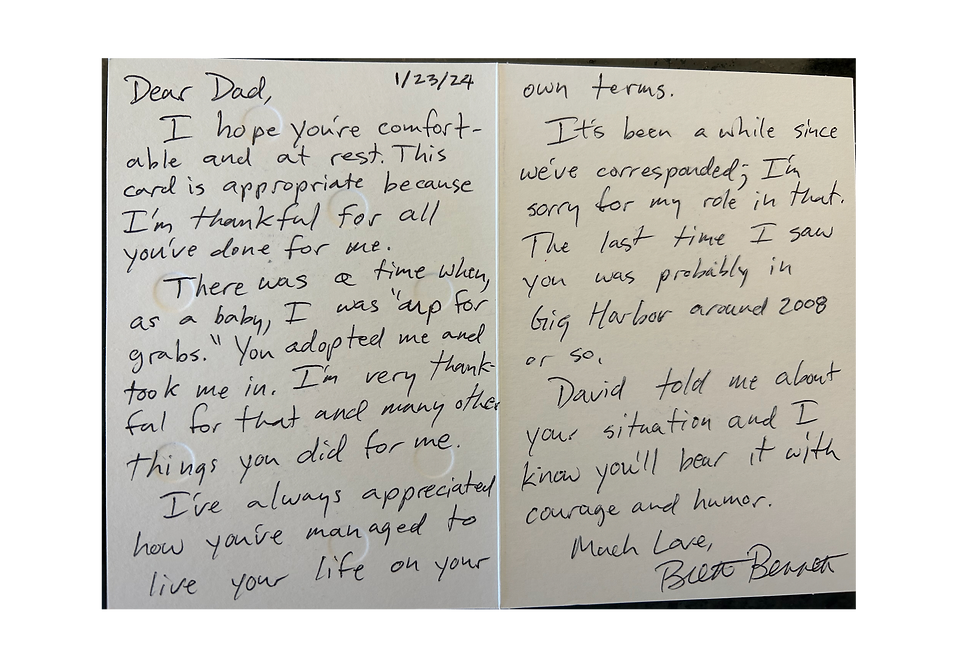 1/23/24
Dear Dad,
I hope you're comfort-
able and at rest. This
card is appropriate because
I'm thankful for all
you've done for me.
There was a time when,
as a baby, I was "up for
grabs." You adopted me and
took me in. I'm very thank-
ful for that and many other
things you did for me.
I've always appreciated
how you've managed to
live your life on your
own terms.
It's been a while since
we've corresponded; I'm
sorry for my role in that.
The last time I saw
you was probably in
Gig Harbor around 2008
or so.
David told me about
your situation and I
know you'll bear it with
courage and humor.
Much Love,
Brett Bennett